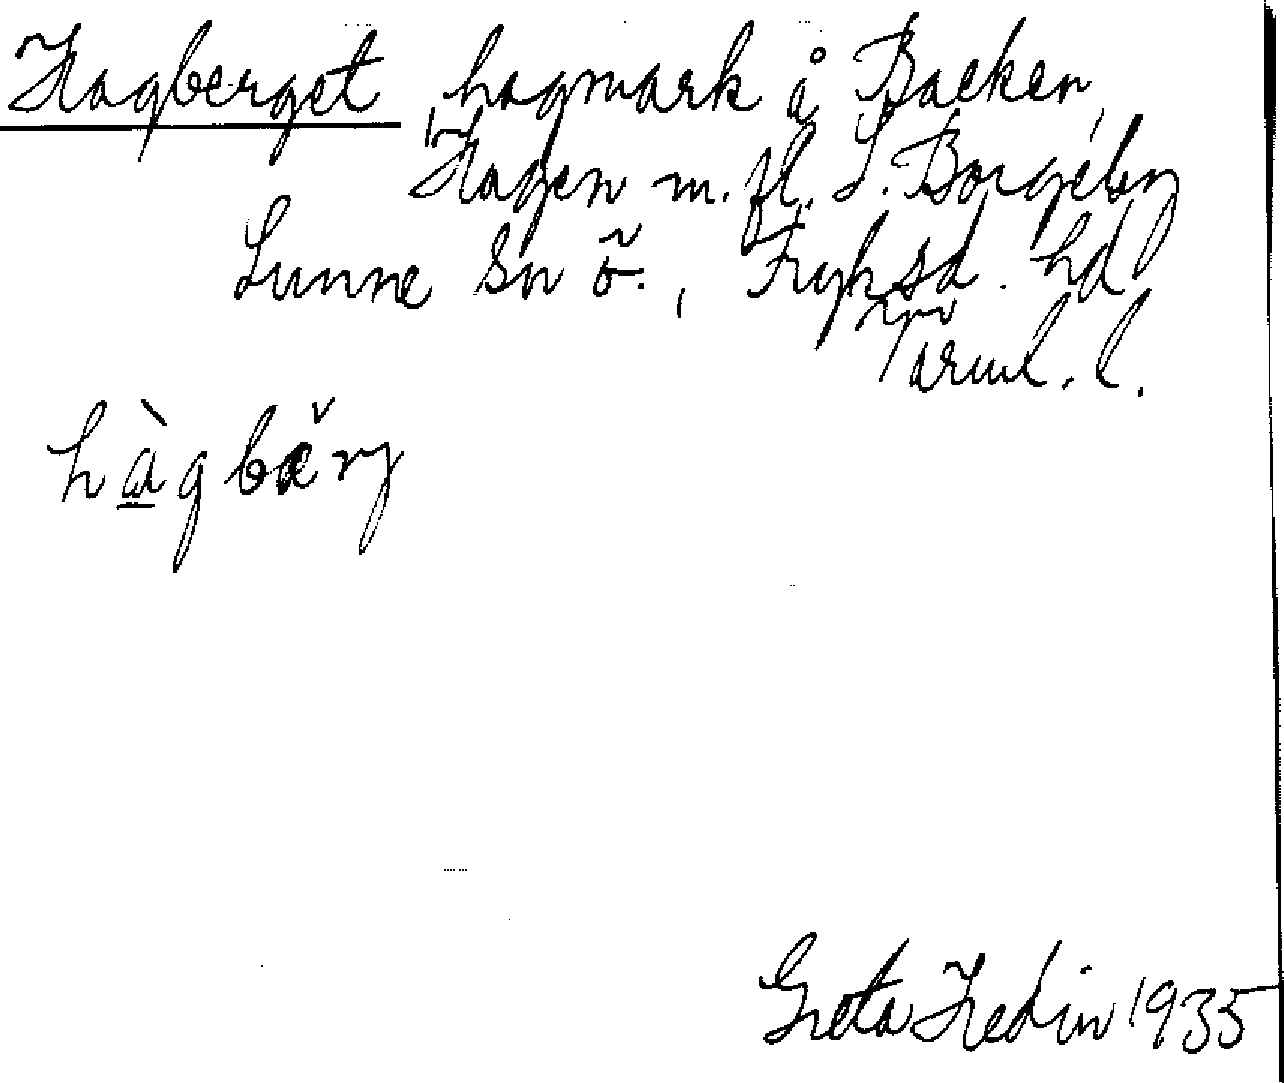 Hagberget, hagmark å Backen,
Hagen m. fl. S. Borgeby
Sunne sn ö., Fryksd. hd
Värml. l.
hàgbärj
Greta Hedin 1935